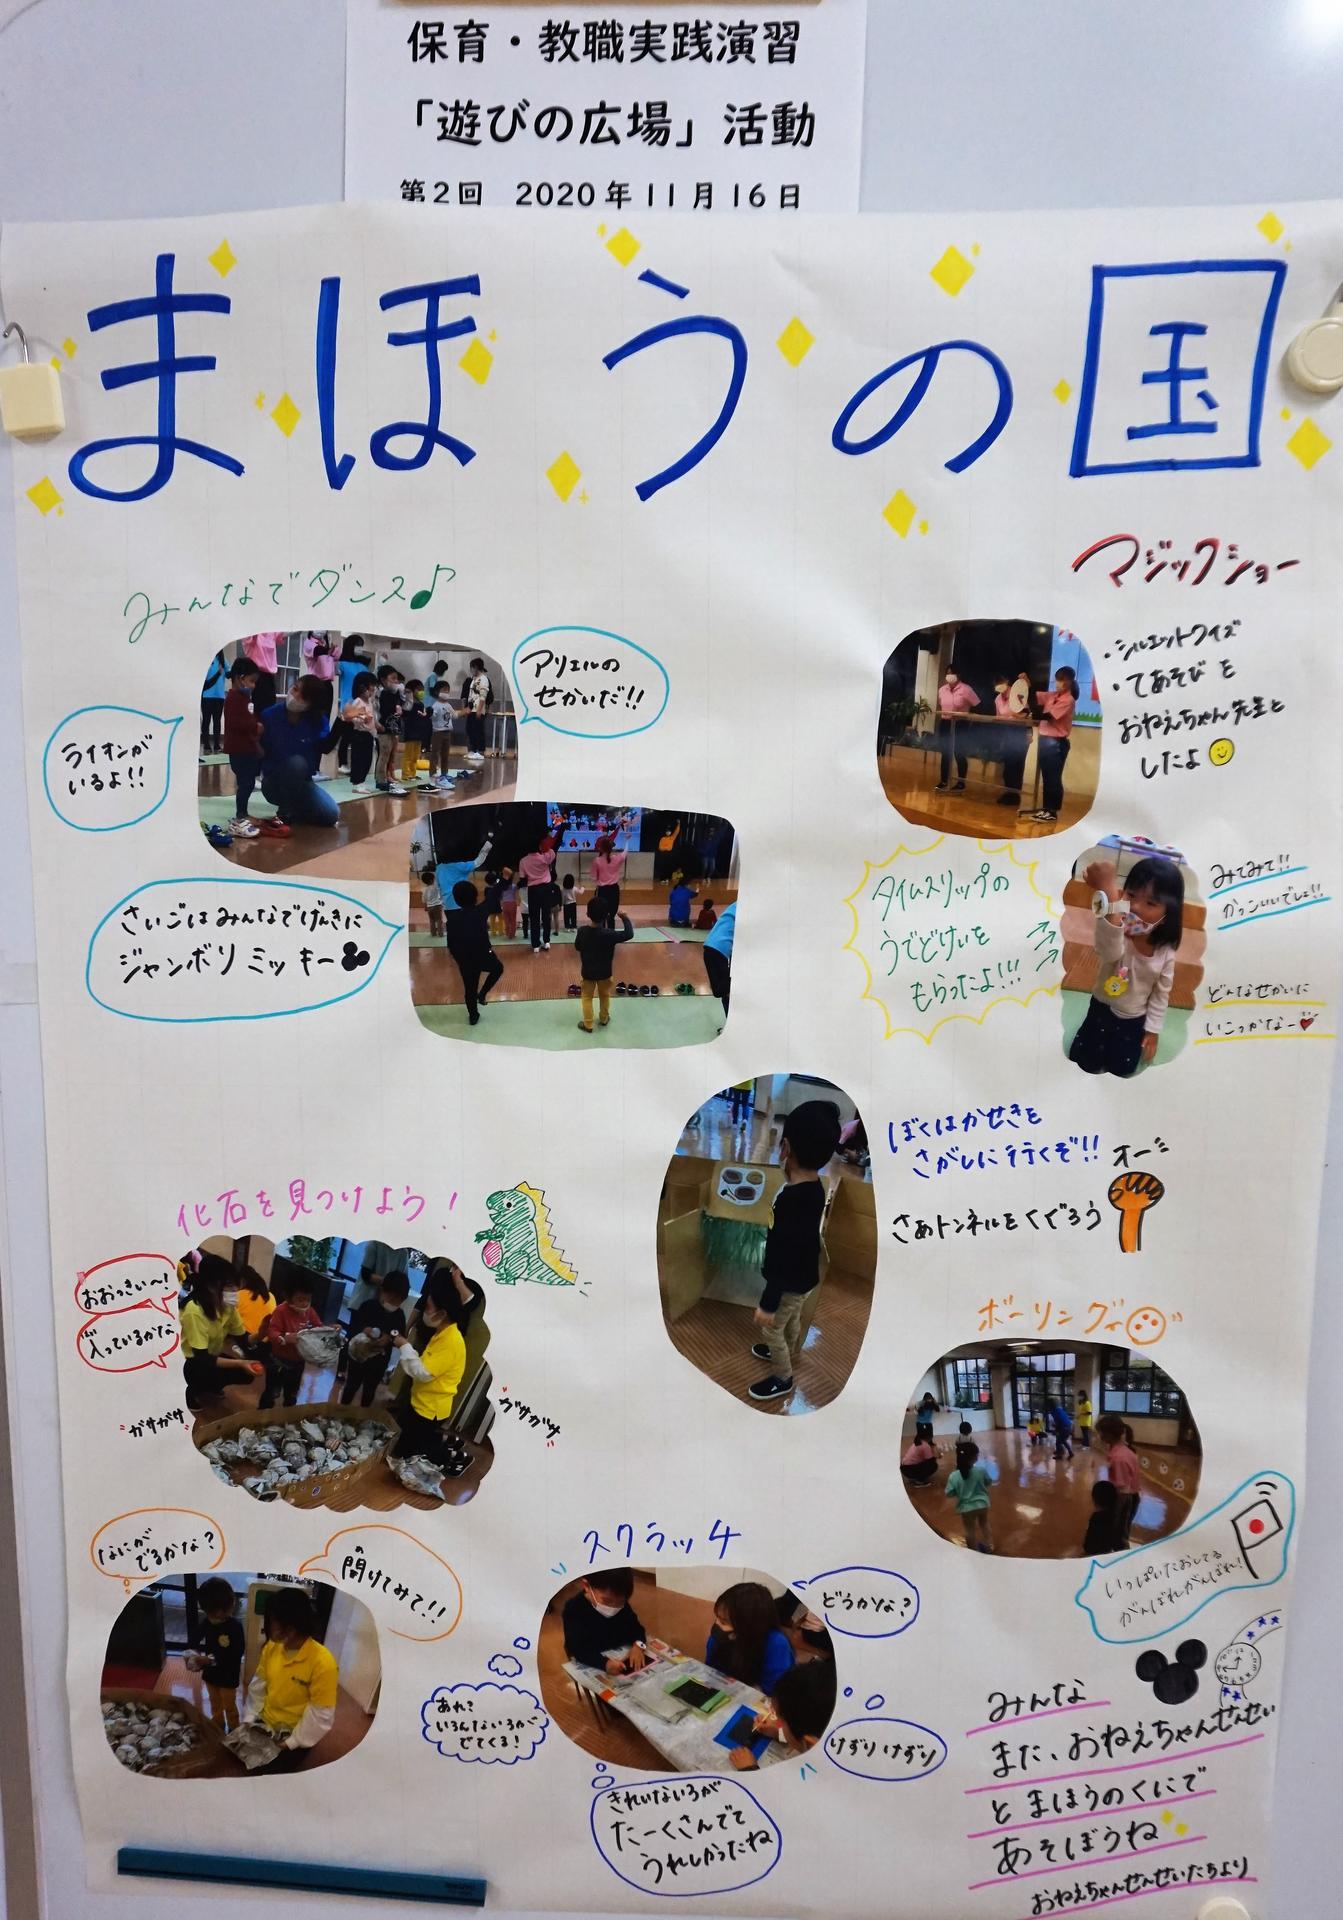 保育・教職実践演習
「遊びの広場」活動
第2回 2020年11月16日
まほうの国
みんなでダンス♪
アリエルの
せかいだ!!
ライオンが
いるよ!!
さいごはみんなでげんきに
ジャンボリミッキー
マジックショー
・シルエットクイズ
・てあそびを
おねえちゃん先生と
したよ
タイムスリップの
うでどけいを
もらったよ!!!
みてみて!!
かっこいいでしょ!!
どんなせかいに
いこっかなー♥
ぼくはかせきを
さがしに行くぞ!!
オー
さぁトンネルをくぐろう
化石を見つけよう!
おおっきい〜!
入っているかな
はい
ガサガサ
ガサガサ
ボーリング
いっぱいたおしてる
がんばれがんばれ!
なにが
でるかな?
開けてみて!!
スクラッチ
どうかな?
あれ?
いろんないろが
でてくる!
けずりけずり
きれいないろが
たーくさんでて
うれしかったね
みんな
また、おねえちゃんせんせい
とまほうのくにで
あそぼうね
おねえちゃんせんせいたちより